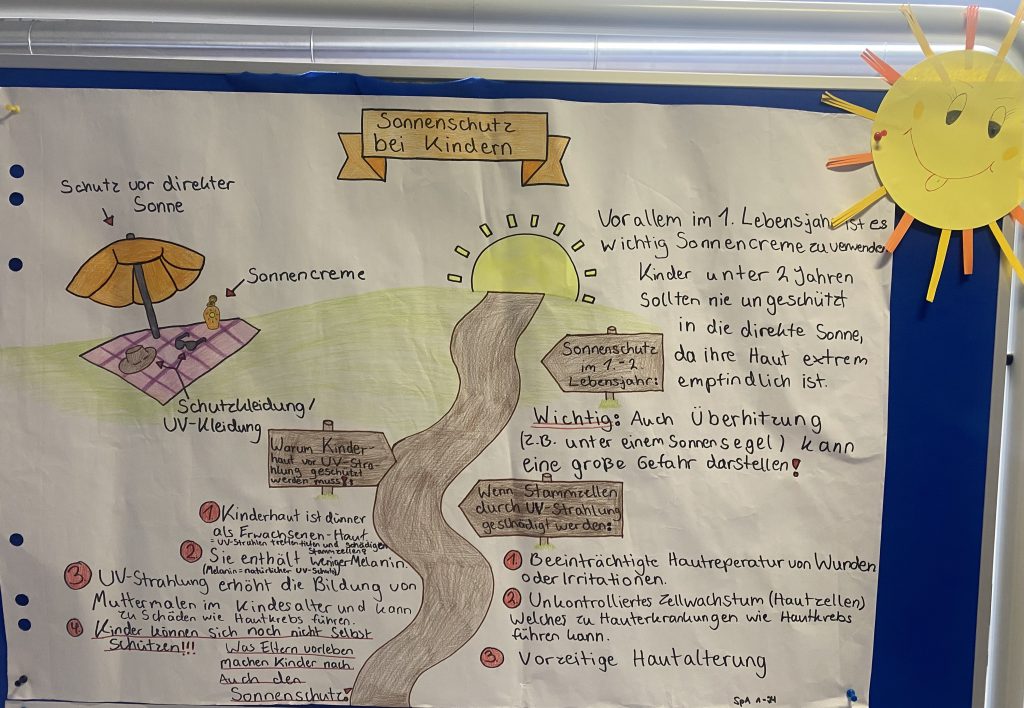 Sonnenschutz
bei Kindern
Schutz vor direkter
Sonne
Sonnencreme
Schutzkleidung/
UV-Kleidung
Vor allem im 1. Lebensjahr ist es
wichtig Sonnencreme zu verwenden
Kinder unter 2 Jahren
sollten nie ungeschützt
in die direkte Sonne,
da ihre Haut extrem
empfindlich ist.
Sonnenschutz
im 1.-2.
Lebensjahr:
Wichtig: Auch Überhitzung
(z.B. unter einem Sonnensegel) kann
eine große Gefahr darstellen!
Warum Kinder-
haut vor UV-Stra-
hlung geschützt
werden muss!
1. Kinderhaut ist dünner
als Erwachsenen-Haut
= UV-Strahlen treffen tiefer und schädigen
Stammzellen
2. Sie enthält weniger Melanin.
(Melanin = natürlicher UV-Schutz)
3. UV-Strahlung erhöht die Bildung von
Muttermalen im Kindesalter und kann
zu Schäden wie Hautkrebs führen.
4. Kinder können sich noch nicht selbst
schützen!!!
Was Eltern vorleben
machen Kinder nach
Auch den
Sonnenschutz!
Wenn Stammzellen
durch UV-Strahlung
geschädigt werden:
1. Beeinträchtigte Hautreperatur von Wunden
oder Irritationen.
2. Unkontrolliertes Zellwachstum (Hautzellen)
Welches zu Hauterkrankungen wie Hautkrebs
führen kann.
3. Vorzeitige Hautalterung